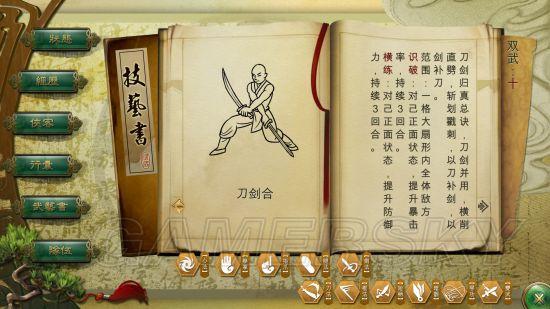 狀態
經歷
俠客
行囊
武藝書
隊伍
技藝書
刀剑合
双武：十
刀剑归真总诀，刀剑并用，横削
直劈，斩划戳刺，以刀补剑以
剑补刀。
范围：一格大扇形内全体敌方
识破：对己正面状态，提升暴击
率，持续3回合。
横练：对己正面状态，提升防御
力，持续3回合。
GAMERSKY